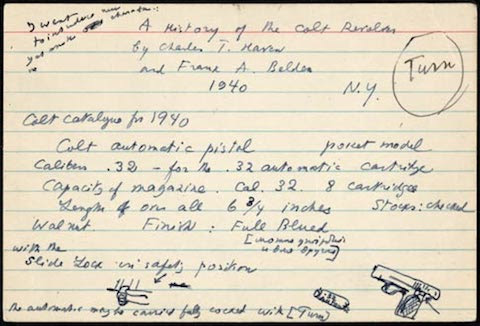 I want
to introduce
A History of the Colt Revolver
by Charles T. Haven
and Frank A. Belden
1940
N.Y.
Turn
Colt catalogue for 1940
Colt automatic pistol pocket model
Calibers .32 – for the .32 automatic cartridge
Capacity of magazine. Cal. 32. 8 cartridges
Length of over all 6 3/4 inches Stocks: checked
Walnut Finish: Full Blued
with the
Slide Lock in safety position
The automatic may be carried fully cocked with [Turn]